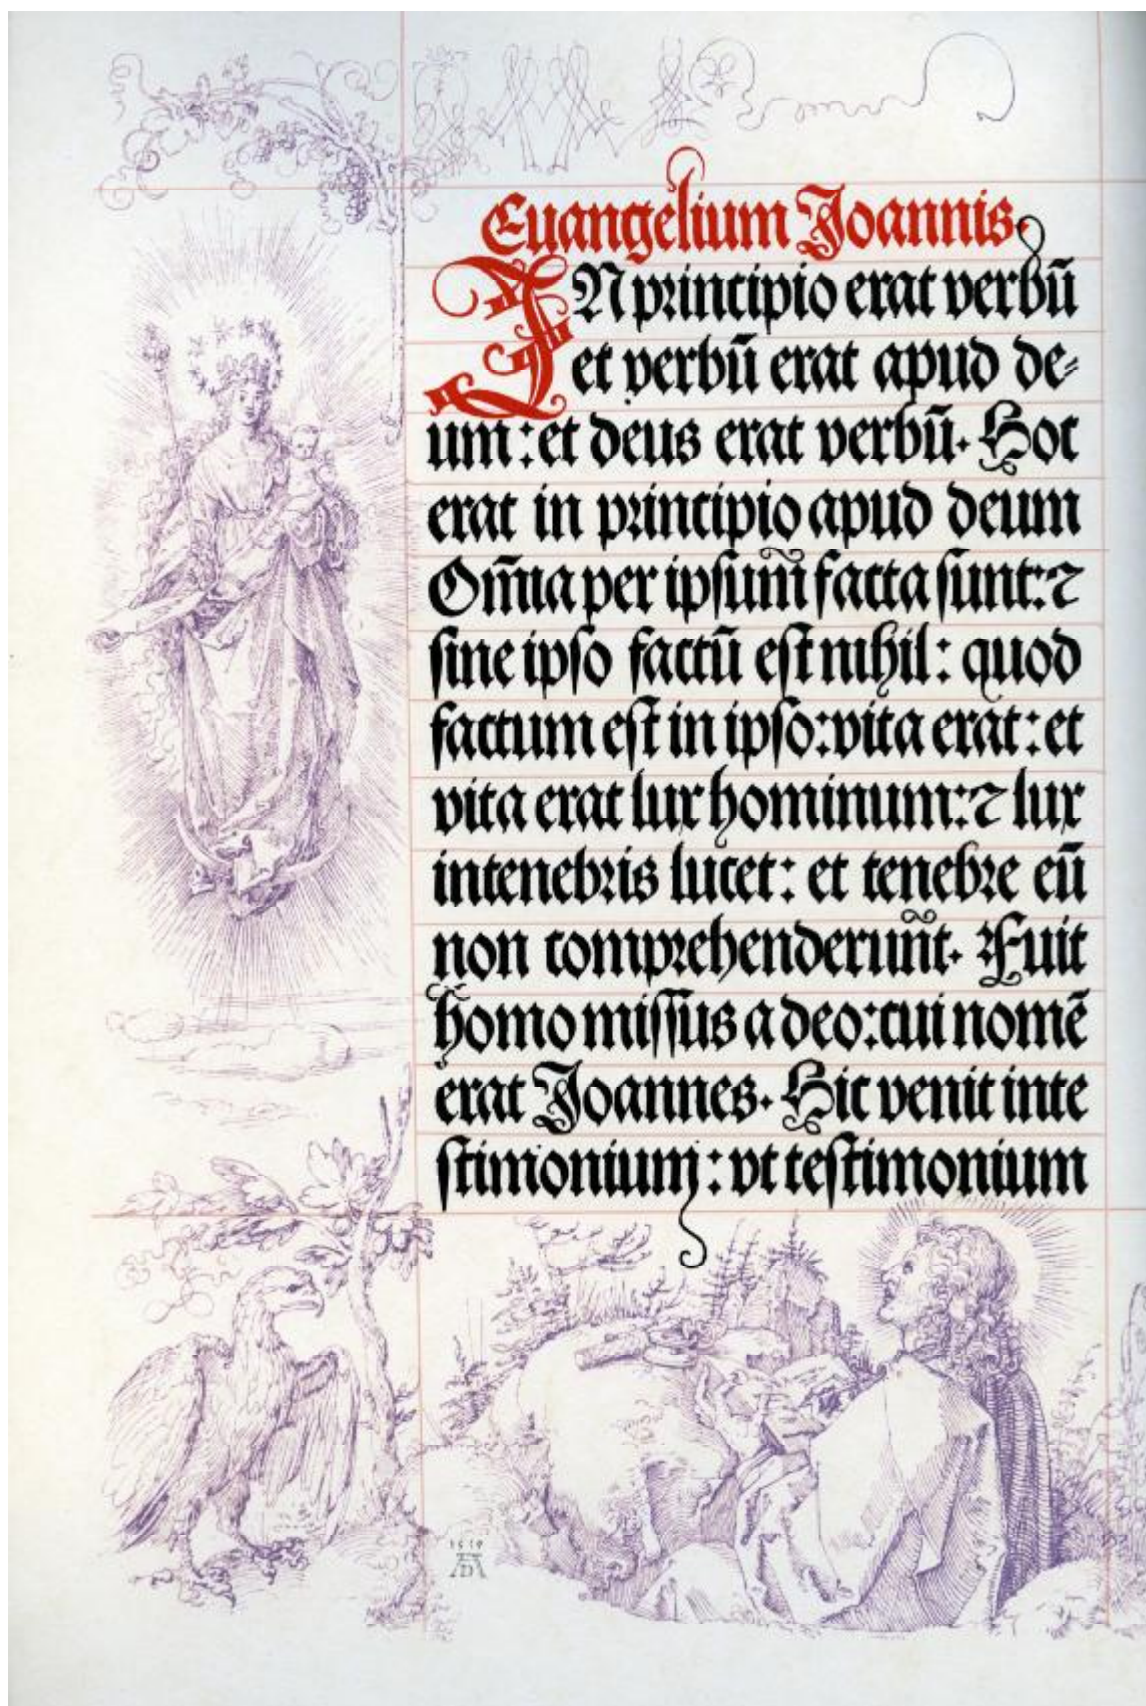 Euangelium Joannis.
IN principio erat verbū
et verbū erat apud de⸗
um: et deus erat verbū. Hoc
erat in principio apud deum
Om̄ia per ipsum̄ facta sunt: ⁊
sine ipso factū est nihil: quod
factum est in ipso: vita erat: et
vita erat lux hominum: ⁊ lux
intenebris lucet: et tenebre eū
non comprehenderun̄t. Fuit
homo missus a deo: cui nomē
erat Joannes. Hic venit inte
stimonium: vt testimonium
1519
AD